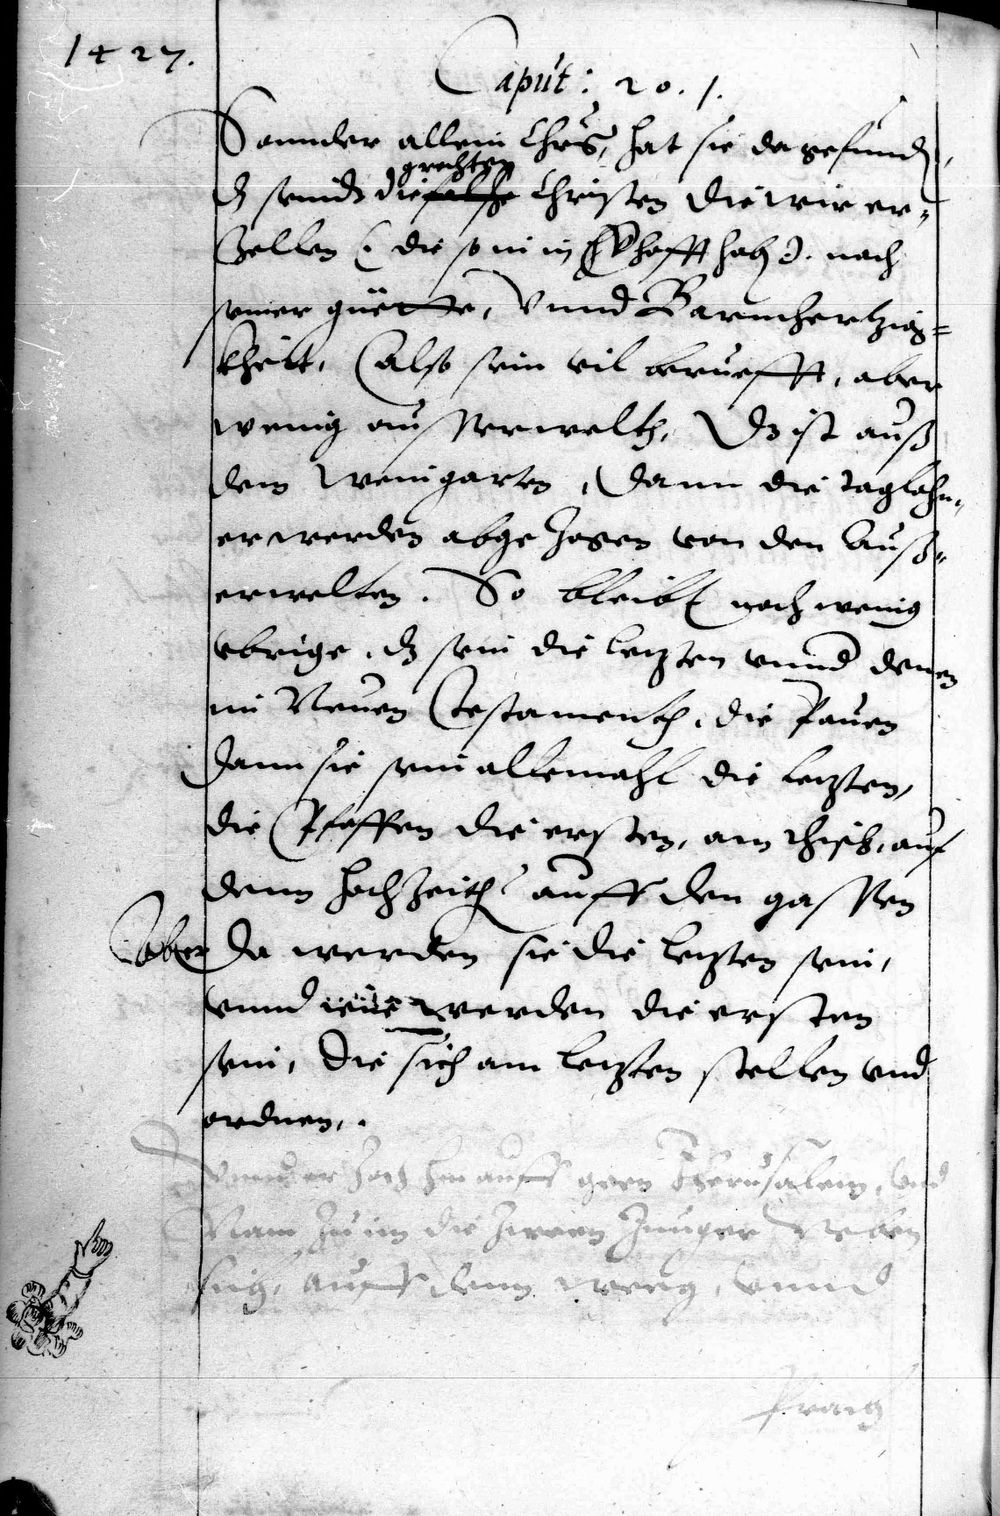 1427.
Caput: 20. 1.
Sonnder allein Chrs, hat sie da gefund,
dz seindt die falsche grechten Christen die wir er-
Zellen (die so in in hofft hab). nach
seiner güette, Vnnd Barmhertzig=
kheit, Also sein vil berufft, aber
wenig ausserwelth, Dz ist auß
dem Weingarten, Dann die taglohn-
er werden abgezogen von den Auß-
erwelten. So bleibt noch wenig
vbrige, dz sein die letzten vnnd denen
im Neuen Testamenth, die Pauren
dann sie sein allemahl die letzten,
die Pfaffen die ersten, am thisch, auf
denn hochzeith auff den gassen
Aber Da werden sie die letzten sein,
vnnd iene werden die ersten
sein, die sich am letzten stellen vnd
ordnen,.
Vnnd er zoch hin auff gen Jherusalem, vnd
Nam zu im die zween Junger Neben
sich, auff dem weeg, vnnd